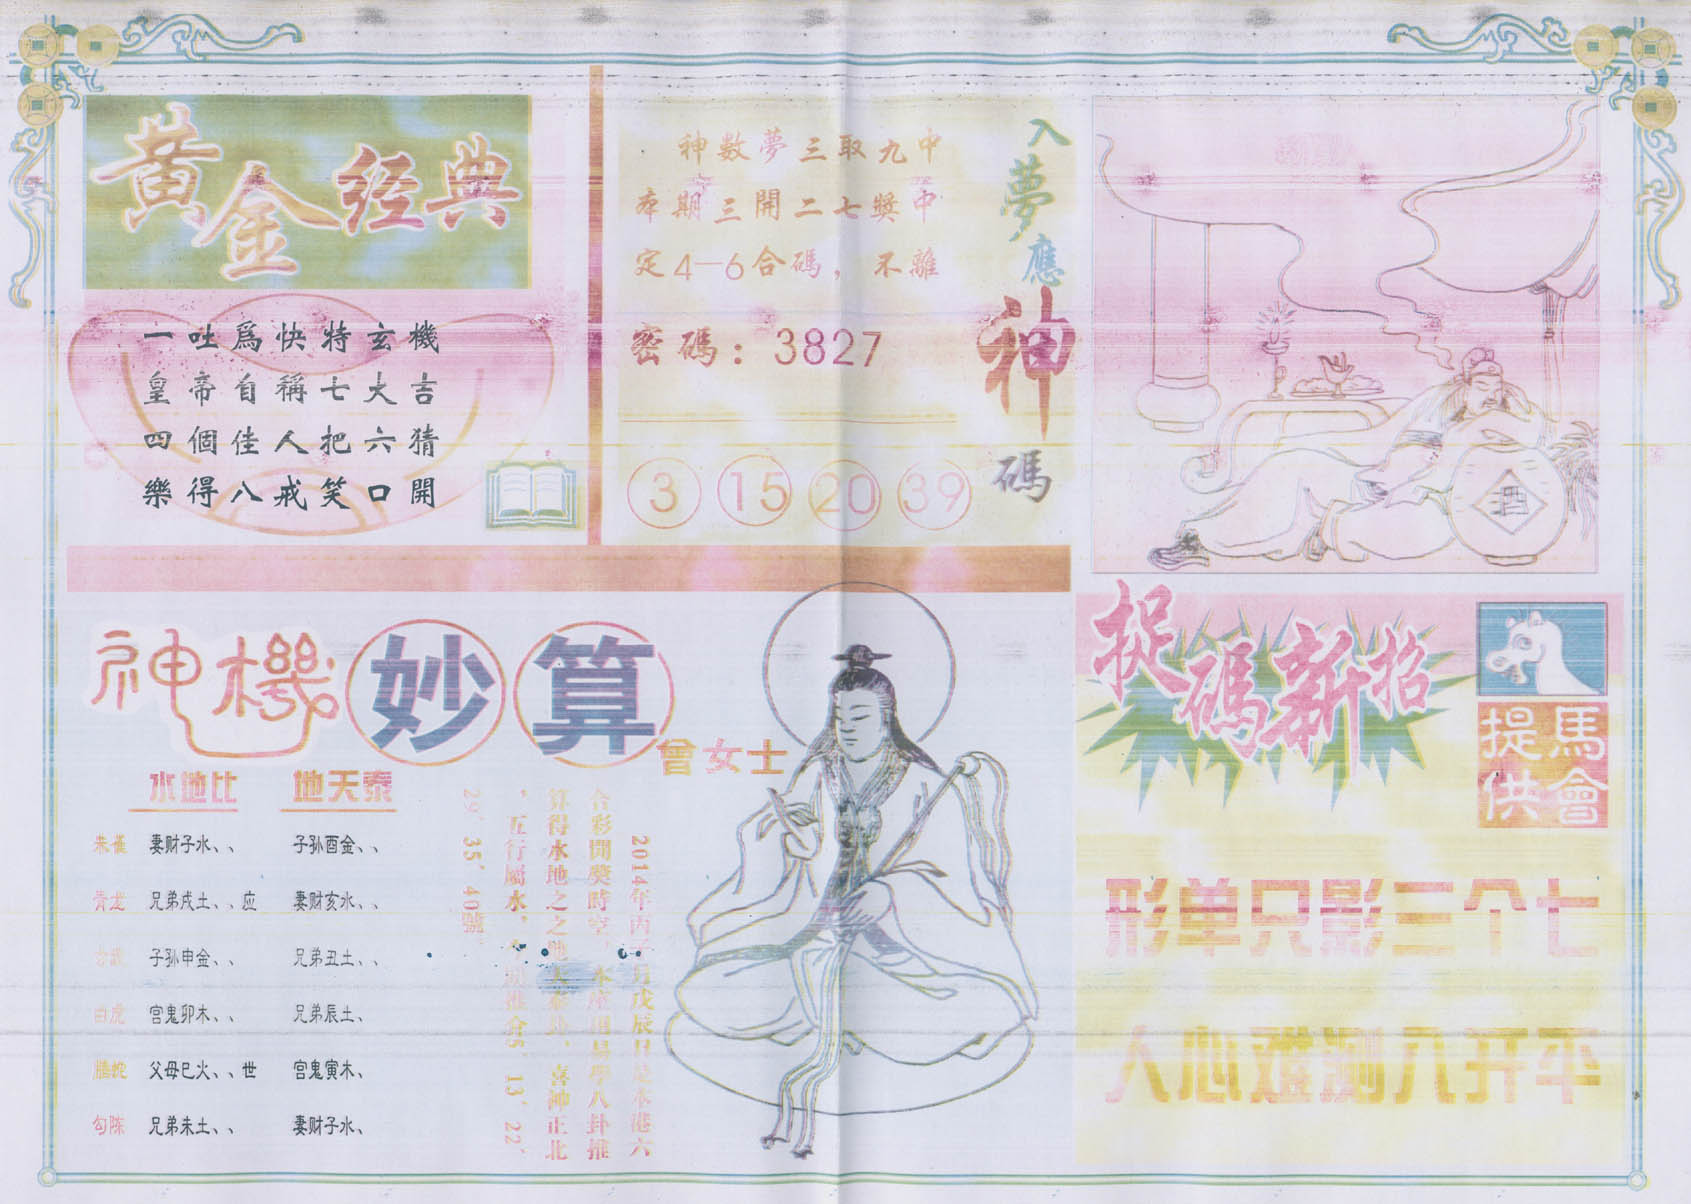 黃金经典
一吐爲快特玄機
皇帝自稱七大吉
四個佳人把六猜
樂得八戒笑口開
神數夢三取九中
本期三開二七獎中
定4—6合碼，不離
密碼：3827
3 15 20 39
入夢應神碼
酒
神機妙算
曾女士
水地比 地天泰
朱雀 妻财子水、、 子孙酉金、、
青龙 兄弟戌土、、应 妻财亥水、、
玄武 子孙申金、、 兄弟丑土、、
白虎 宫鬼卯木、、 兄弟辰土、
螣蛇 父母巳火、、世 宫鬼寅木、
勾陈 兄弟未土、、 妻财子水、
2014年丙子月戊辰日是本港六
合彩開獎時空，本座用易學八卦推
算得水地之之地天泰卦，喜神正北
，五行屬水，今期推介5、13、22、
29、35、40號。
捉碼新招
馬會提供
形单只影三个七
人心难测八开平